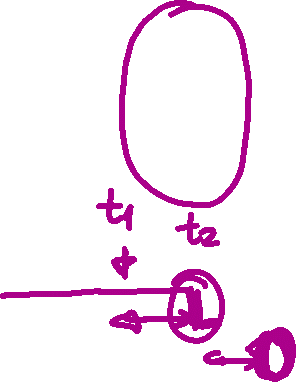 t1
t2